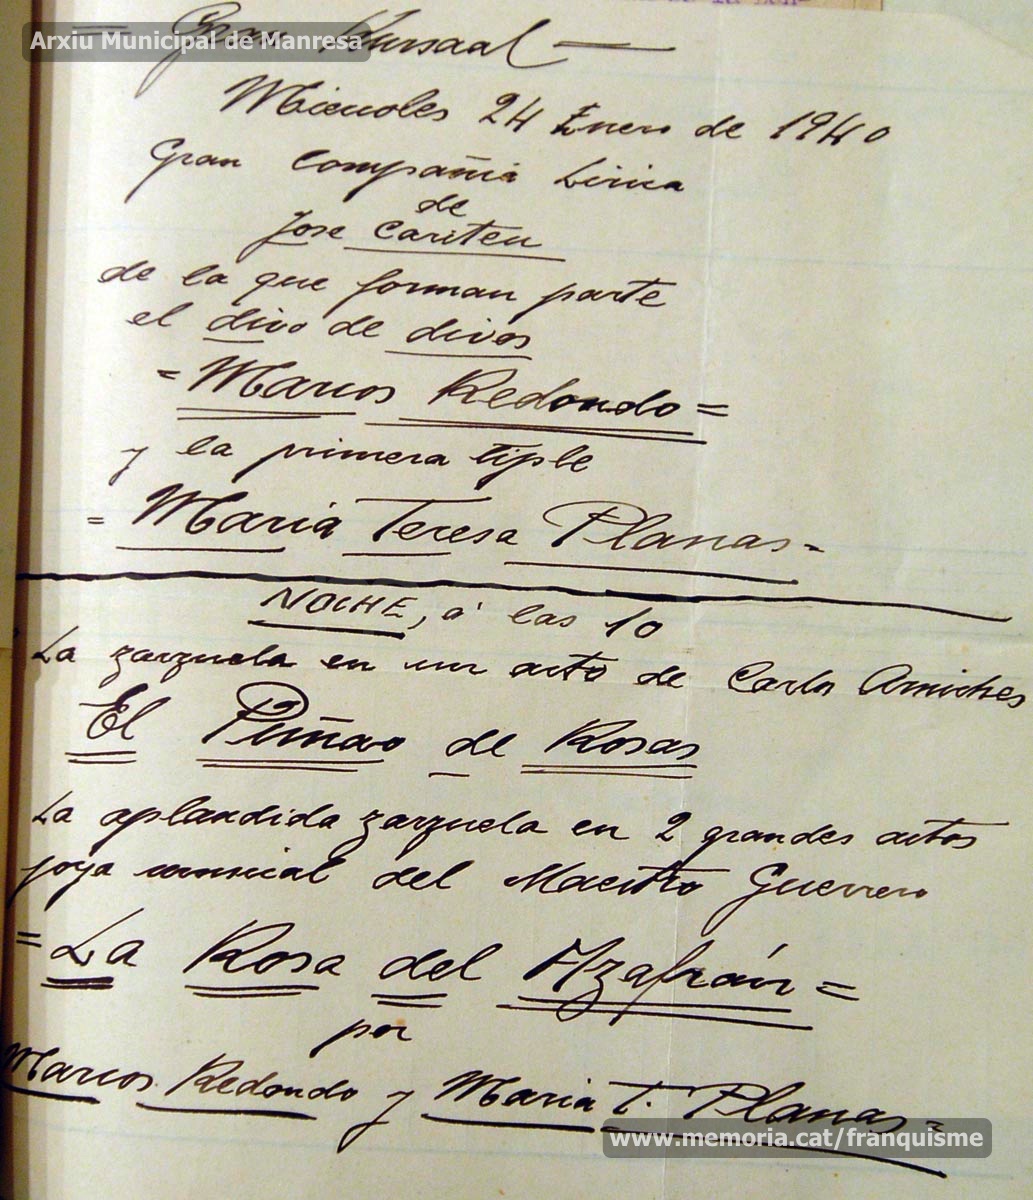 Arxiu Municipal de Manresa
= Gran Kursaal —
Miercoles 24 Enero de 1940
Gran Compañia Lirica
de
Jose Cariteu
de la que forman parte
el divo de divos
= Marcos Redondo =
y la primera tiple
= Maria Teresa Planas =
NOCHE, á las 10
La zarzuela en un acto de Carlos Arniches
El Puñao de Rosas
La aplaudida zarzuela en 2 grandes actos
joya musical del Maestro Guerrero
= La Rosa del Azafrán =
por
Marcos Redondo y Maria T. Planas =
www.memoria.cat/franquisme